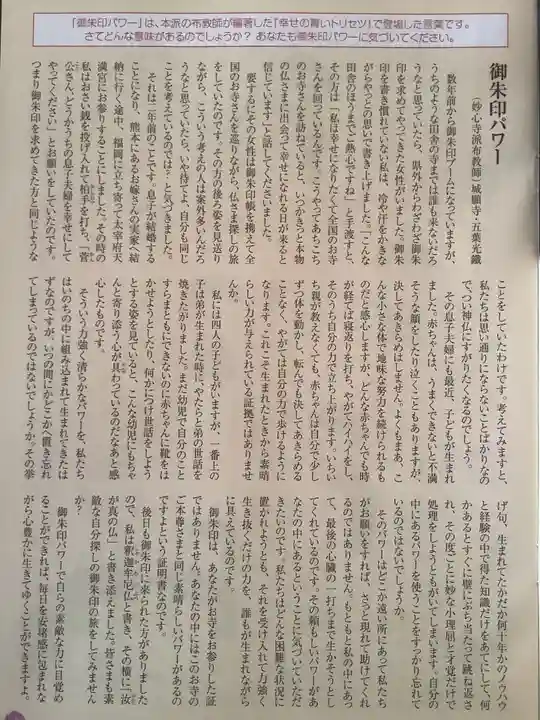 「御朱印パワー」は、本派の布教師が編著した『幸せの青いトリセツ』で登場した言葉です。
さてどんな意味があるのでしょうか？ あなたも御朱印パワーに気づいてください。
御朱印パワー
（妙心寺派布教師）城願寺・五葉光鐵
数年前から御朱印ブームになっていますが、
うちのような田舎の寺までは誰も来ないだろ
うなと思っていたら、県外からわざわざ御朱
印を求めてやってきた女性がいました。御朱
印を書き慣れていない私は、冷や汗をかきな
がらやっとの思いで書き上げました。「こんな
田舎のほうまでご熱心ですね」と手渡すと、
その方は「私は幸せになりたくて全国のお寺
さんを回っているんです。こうやってあちこち
のお寺さんを訪ねていると、いつかきっと本物
の仏さまに出会って幸せになれる日が来ると
信じています」と話してくださいました。
要するにその女性は御朱印帳を携えて全
国のお寺さんを巡りながら、仏さま探しの旅
をしていたのです。その方の後ろ姿を見送り
ながら、こういう考えの人は案外多いんだろ
うなと思っていたら、いや待てよ、自分も同じ
ことを考えているのでは？と気づきました。
それは二年前のことです。息子が結婚する
ことになり、熊本にあるお嫁さんの実家へ結
納に行く途中、福岡に立ち寄って太宰府天
満宮にお参りすることにしました。その時の
私はお賽銭を投げ入れて柏手を打ち、「菅
公さん、どうかうちの息子夫婦を幸せにして
やってください」とお願いをしていたのです。
つまり御朱印を求めてきた方と同じような
ことをしていたわけです。考えてみますと、
私たちは思い通りにならないことばかりなの
で、つい神仏にすがりたくなるのでしょう。
その息子夫婦にも最近、子どもが生まれ
ました。赤ちゃんは、うまくできないと不満
そうな顔をしたり泣くこともありますが、
決してあきらめはしません。よくもまあ、こ
んな小さな体で地味な努力を続けられるも
のだと感心しますが、どんな赤ちゃんでも時
が経てば寝返りを打ち、やがてハイハイをし、
そのうち自分の力で立ち上がります。いちい
ち親が教えなくても、赤ちゃんは自分で少し
ずつ体を動かし、転んでも決してあきらめる
ことなく、やがては自分の力で歩けるように
なります。これこそ生まれたときから素晴
らしい力が与えられている証拠ではありませ
んか。
私には四人の子どもがいますが、一番上の
子は弟が生まれた時に、やたらと弟の世話を
焼きたがりました。まだ幼児で自分のこと
すらまともにできないのに赤ちゃんに靴をは
かせようとしたり、何かにつけ世話をしよう
とする姿を見ていると、こんな幼児にもちゃ
んと寄り添う心が具わっているのだなあと感
心したものです。
そういう力強く清らかなパワーを、私たち
はいのちの中に組み込まれて生まれてきたは
ずなのですが、いつの間にかどこかへ置き忘れ
てしまっているのではないでしょうか。その挙
げ句、生まれてたかだか何十年かのノウハウ
と経験の中で得た知識だけをあてにして、何
かあるとすぐに壁にぶち当たって跳ね返さ
れ、その度ごとに妙な小理屈と才覚だけで
処理をしようともがいてしまいます。自分の
中にあるパワーを使うことをすっかり忘れて
いるのではないでしょうか。
そのパワーはどこか遠い所にあって私たち
がお願いをすれば、さっと現れて助けてくれ
るのではありません。もともと私の中にあっ
て、最後の心臓の一打ちまで生かそうとし
てくれているのです。その頼もしいパワーがあ
なたの中にあるということに気づいていただ
きたいのです。私たちはどんな困難な状況に
置かれようとも、それを受け入れて力強く
生き抜くだけの力を、誰もが生まれながら
に具えているのです。
御朱印は、あなたがお寺をお参りした証
ではありません。あなたの中にはこのお寺の
ご本尊さまと同じ素晴らしいパワーがあるの
ですよという証明書なのです。
後日も御朱印に来られた方がありました
ので、私は釈迦牟尼仏と書き、その横に「汝
が真の仏」と書き添えました。皆さまも素
敵な自分探しの御朱印の旅をしてみません
か？
御朱印パワーで自らの素敵な力に目覚め
ることができれば、毎日を安堵感に包まれな
がら心豊かに生きてゆくことができますよ。